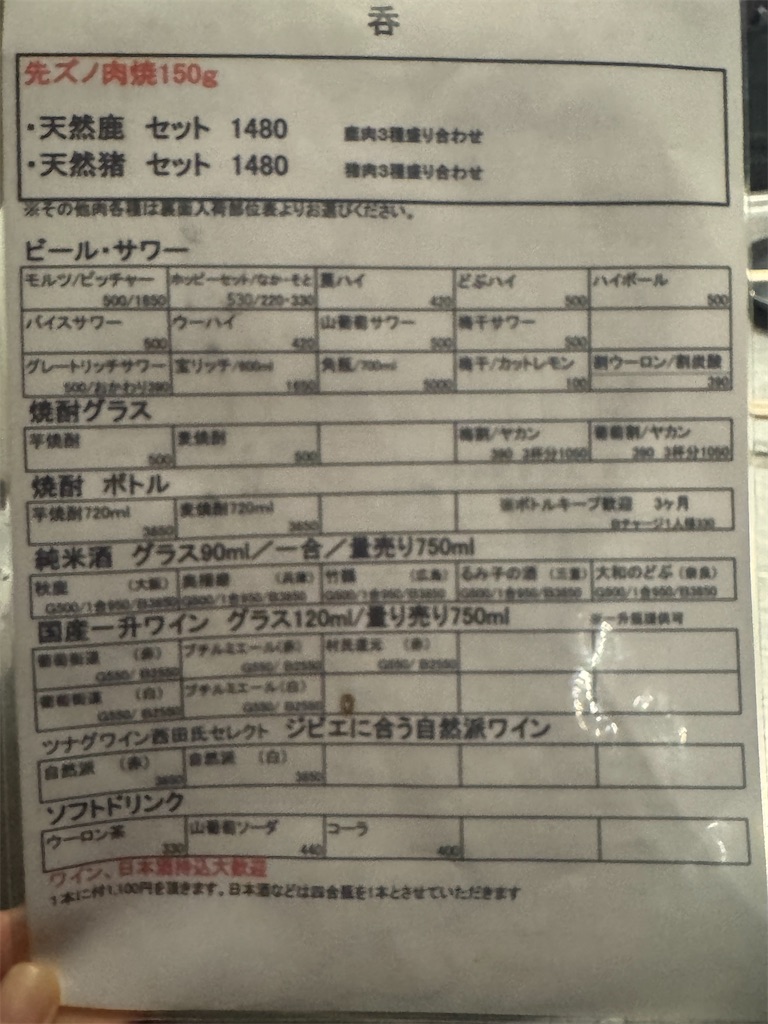 呑
先ズノ肉焼150g
・天然鹿 セット 1480 鹿肉3種盛り合わせ
・天然猪 セット 1480 猪肉3種盛り合わせ
※その他肉各種は裏面入荷部位表よりお選びください。
ビール・サワー
モルツ/ピッチャー ホッピーセット/なか・そと ハイ どぶハイ ハイボール
500/1650 530/220・330 420 500 500
バイスサワー ウーハイ 山葡萄サワー 梅干サワー
500 420 500 500
グレートリッチサワー 宝リッチ/600ml 角瓶/700ml 梅干/カットレモン 割ウーロン/割炭酸
500/おかわり390 1650 5000 100 390
焼酎グラス
芋焼酎 麦焼酎 梅割/ヤカン 葡萄割/ヤカン
500 500 390 3杯分1050 390 3杯分1050
焼酎 ボトル
芋焼酎720ml 麦焼酎720ml ※ボトルキープ歓迎 3ヶ月
3850 3850 日チャージ1人様330
純米酒 グラス90ml/一合/量売り750ml
秋鹿 (大阪) 奥播磨 (兵庫) 竹鶴 (広島) るみ子の酒 (三重) 大和のどぶ (奈良)
G500/1合950/B3850 G500/1合950/B3850 G500/1合950/B3850 G500/1合950/B3850 G500/1合950/B3850
国産一升ワイン グラス120ml/量り売り750ml ※一升瓶提供可
葡萄街道 (赤) プチルミエール(赤) 村民還元 (赤)
G550/ B2550 G550/ B2550 G550/ B2550
葡萄街道 (白) プチルミエール(白)
G550/ B2550 G550/ B2550
ツナグワイン西田氏セレクト ジビエに合う自然派ワイン
自然派 (赤) 自然派 (白)
3850 3850
ソフトドリンク
ウーロン茶 山葡萄ソーダ コーラ
330 440 400
ワイン、日本酒持込大歓迎
1本に付1,100円を頂きます。日本酒などは四合瓶を1本とさせていただきます